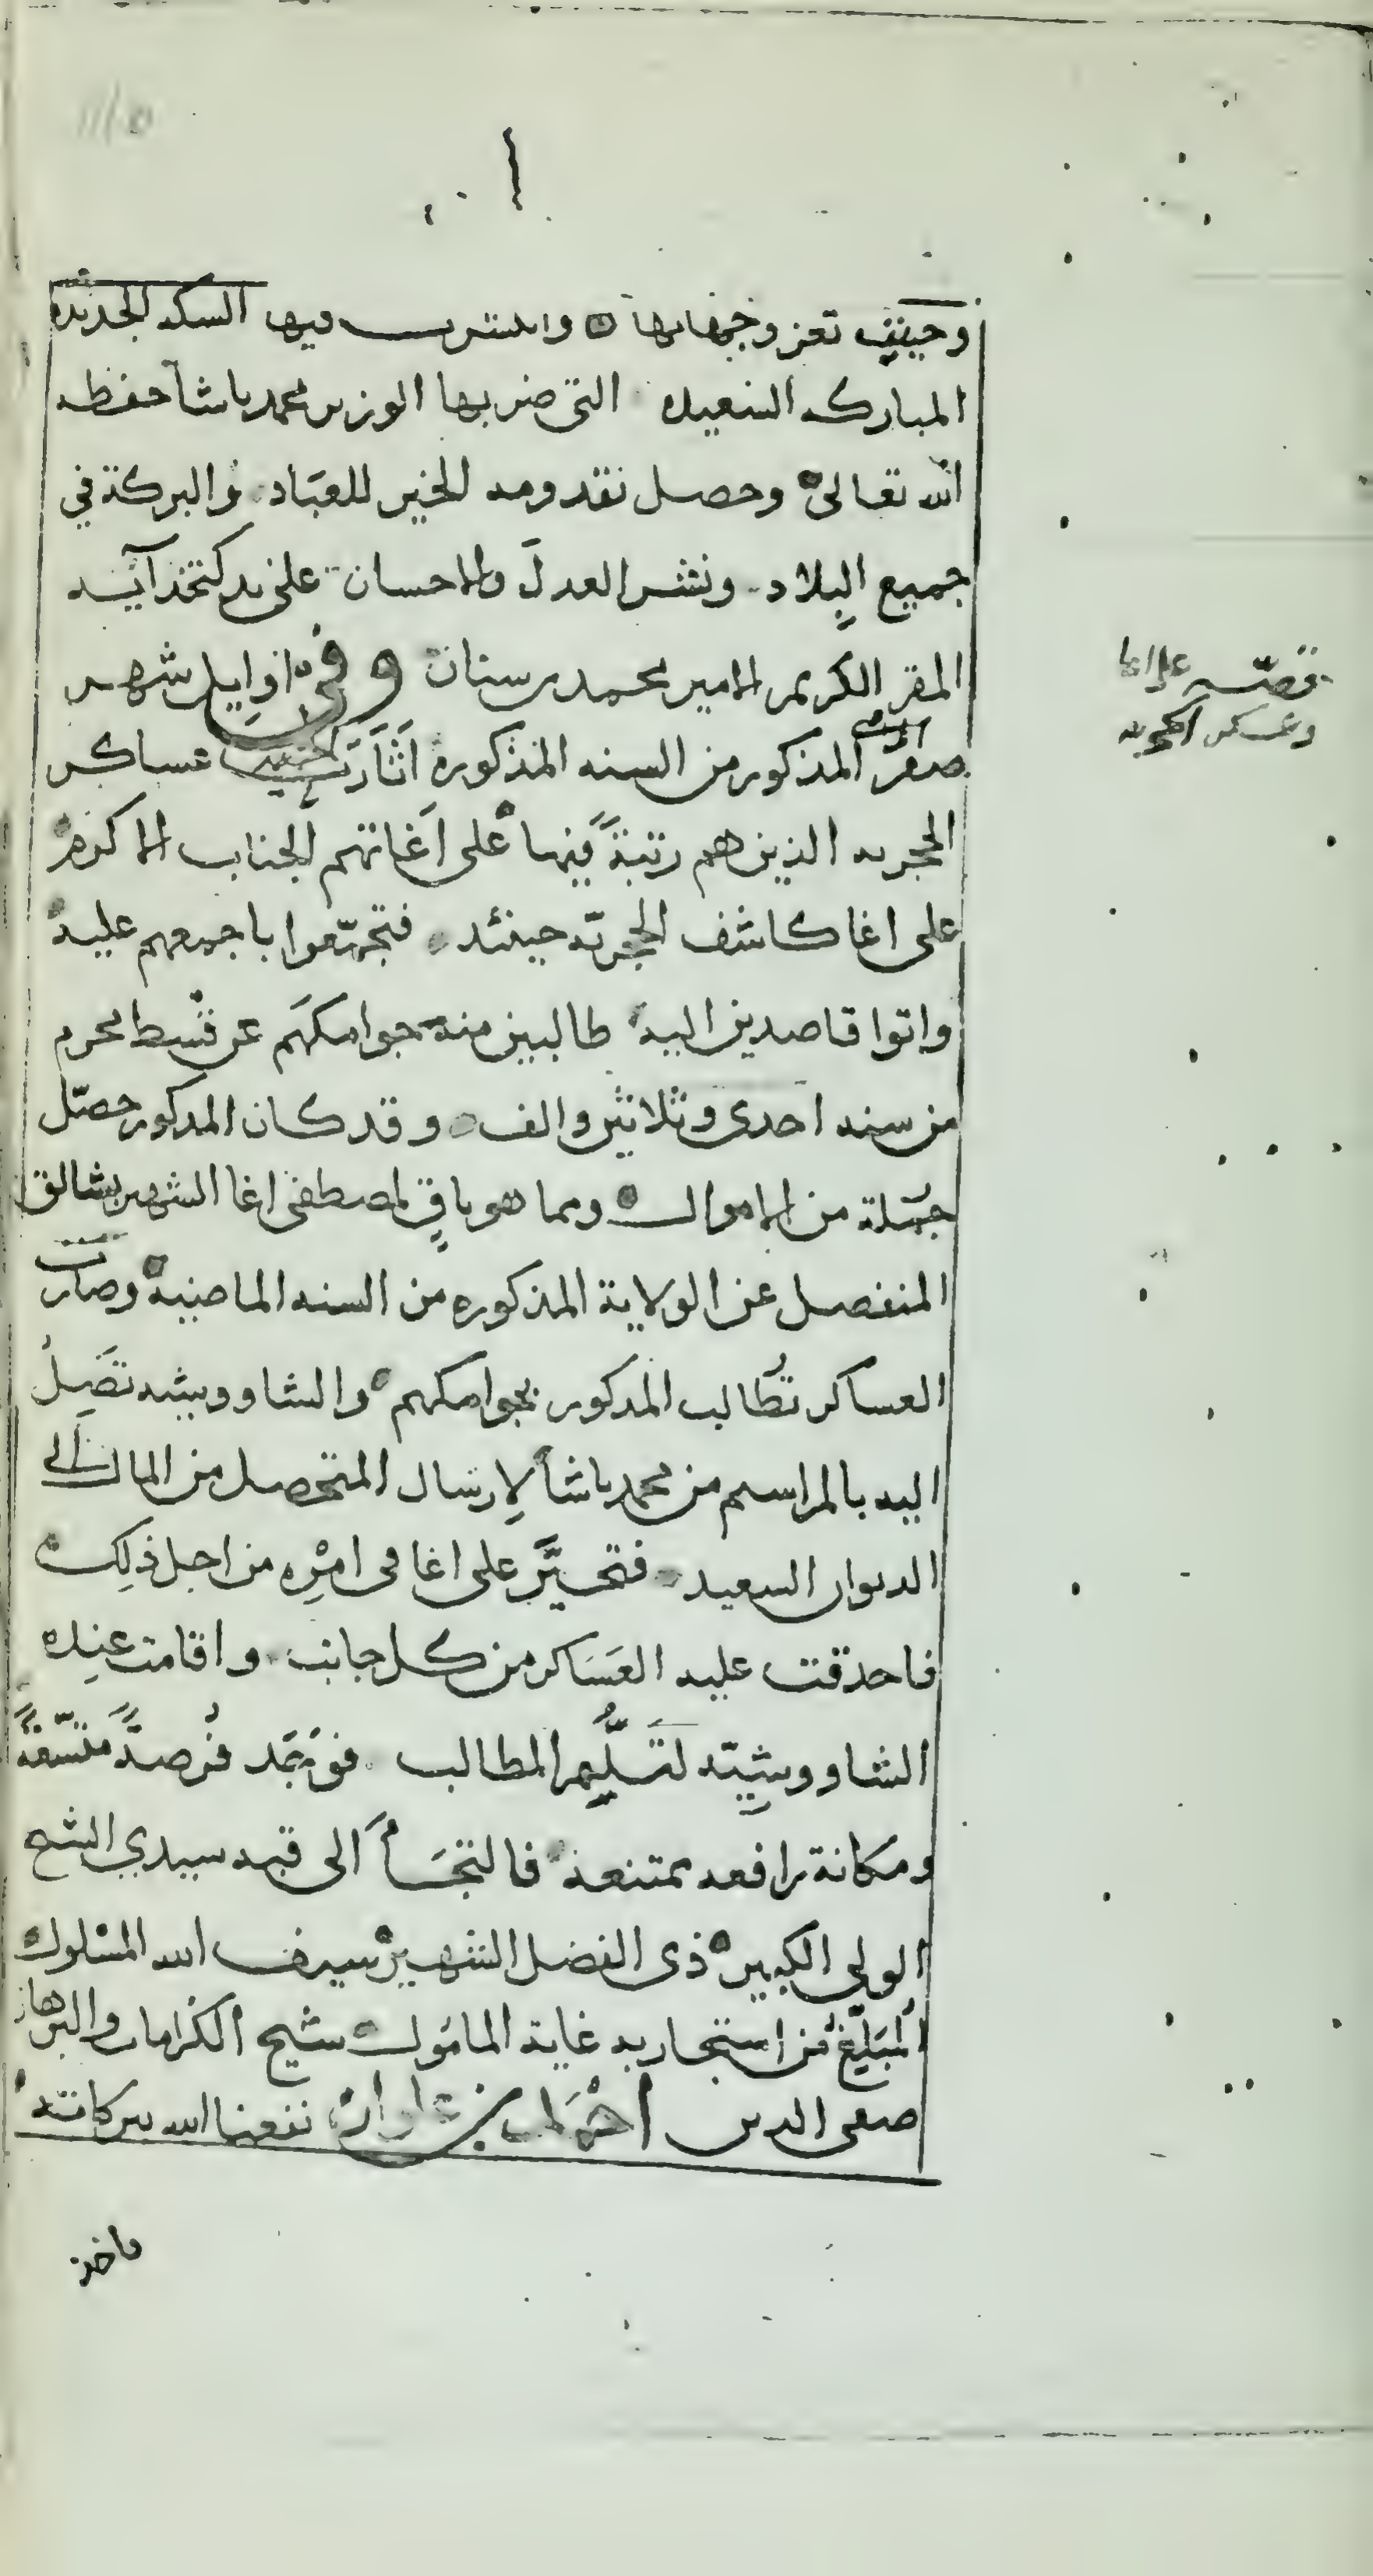 وحينئذ تعز وجهاتها وانتشرت فيها السكه الجديدة
المباركه السعيده التى ضربها الوزير محمد باشا حفظه
الله تعالى وحصل بقدومه الخير للعباد والبركة في
جميع البلاد ونشر العدل والاحسان على يد كتخدآئيه
المقر الكريم الامير محمد بن سنان وفي اوايل شهر
صفر المذكور من السنه المذكورة اثارت عساكر
الحجريه الذين هم رتبة فيها على اغاتهم الجناب الاكرم
على اغا كاشف الحجريّه حينئد فتجمّعوا باجمعهم عليه
واتوا قاصدين اليه طالبين منه جوامكهم عن قسط محرم
من سنه احدى وثلاثين والف وقد كان المدكور حصّل
جملة من الاموال ومما هو باقٍ لمصطفى اغا الشهير بشالق
المنفصل عن الولاية المذكوره من السنه الماضيه وصارت
العساكر تُطالب المدكور بجوامكهم والشاوويشه تصِلُ
اليه بالمراسيم من محمد باشا لإرسال المتحصل من المال الى
الديوان السعيد فتحيَّر على اغا فى امْرِه من اجل ذلِك
فاحدقت عليه العَسَاكر من كل جانب واقامت عنده
الشاوويشيّه لتسلُّيم المطالب فوجد فُرصةً متّسعةً
ومكانة رافعه ممتنعة فالتجَأ الى قبه سيدي الشيخ
الولي الكبير ذى الفضل الشهير سيف الله المسلول
المُبَلِّغ من استجار به غاية المامَول شيخ الكرامات والبرهان
صفى الدين احمد بن علوان نفعنا الله ببركاته
فاخذ
قصّة على اغا
وعسكر الحجريه